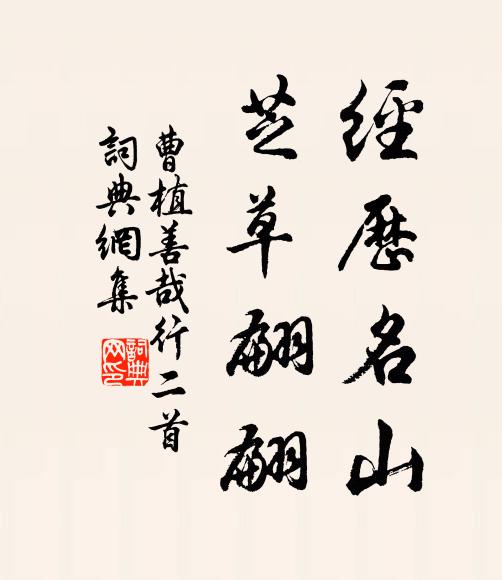 經歷名山
芝草翩翩
曹植善哉行二首
詞典網集
詞典
网印